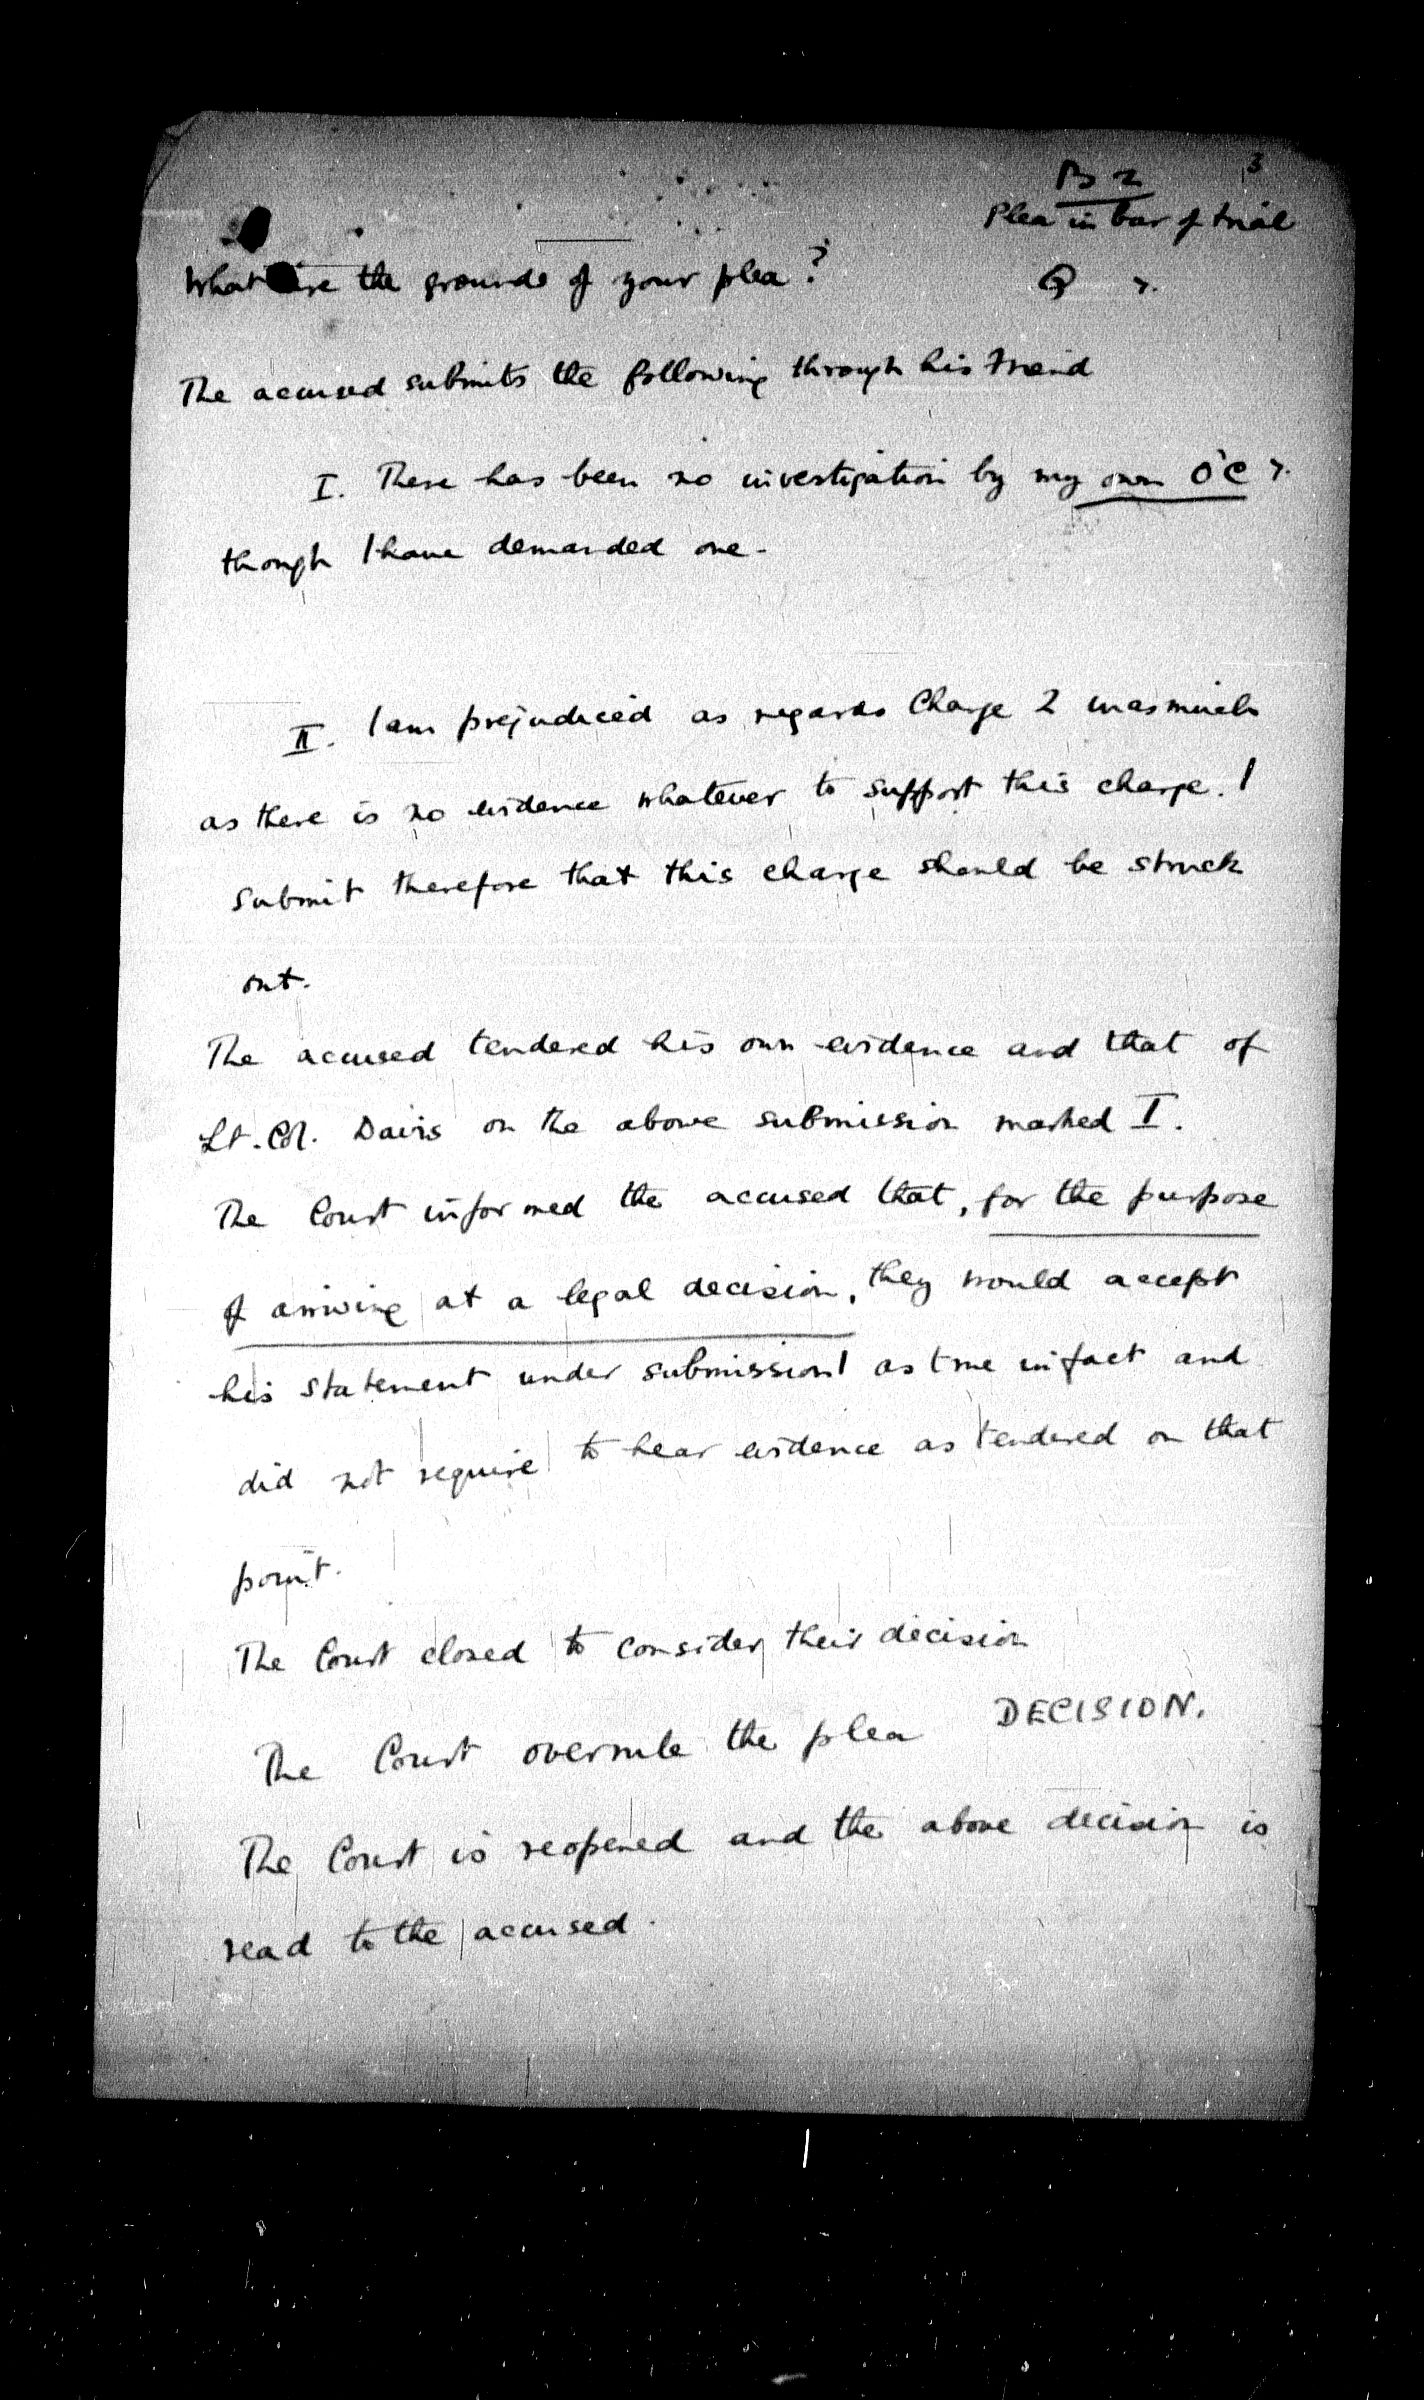 3
B 2
Plea in bar of trial
What are the grounds of your plea? Q 7.
The accused submits the following through his friend
I. There has been no investigation by my own O'C 7.
though I have demanded one.
II. I am prejudiced as regards Charge 2 inasmuch
as there is no evidence whatever to support this charge. I
submit therefore that this charge should be struck
out.
The accused tendered his own evidence and that of
Lt. Col. Davis on the above submission marked I.
The Court informed the accused that, for the purpose
of arriving at a legal decision, they would accept
his statement under submission I as true in fact and
did not require to hear evidence as tendered on that
point.
The Court closed to consider their decision
DECISION.
The Court overrule the plea
The Court is reopened and the above decision is
read to the accused.